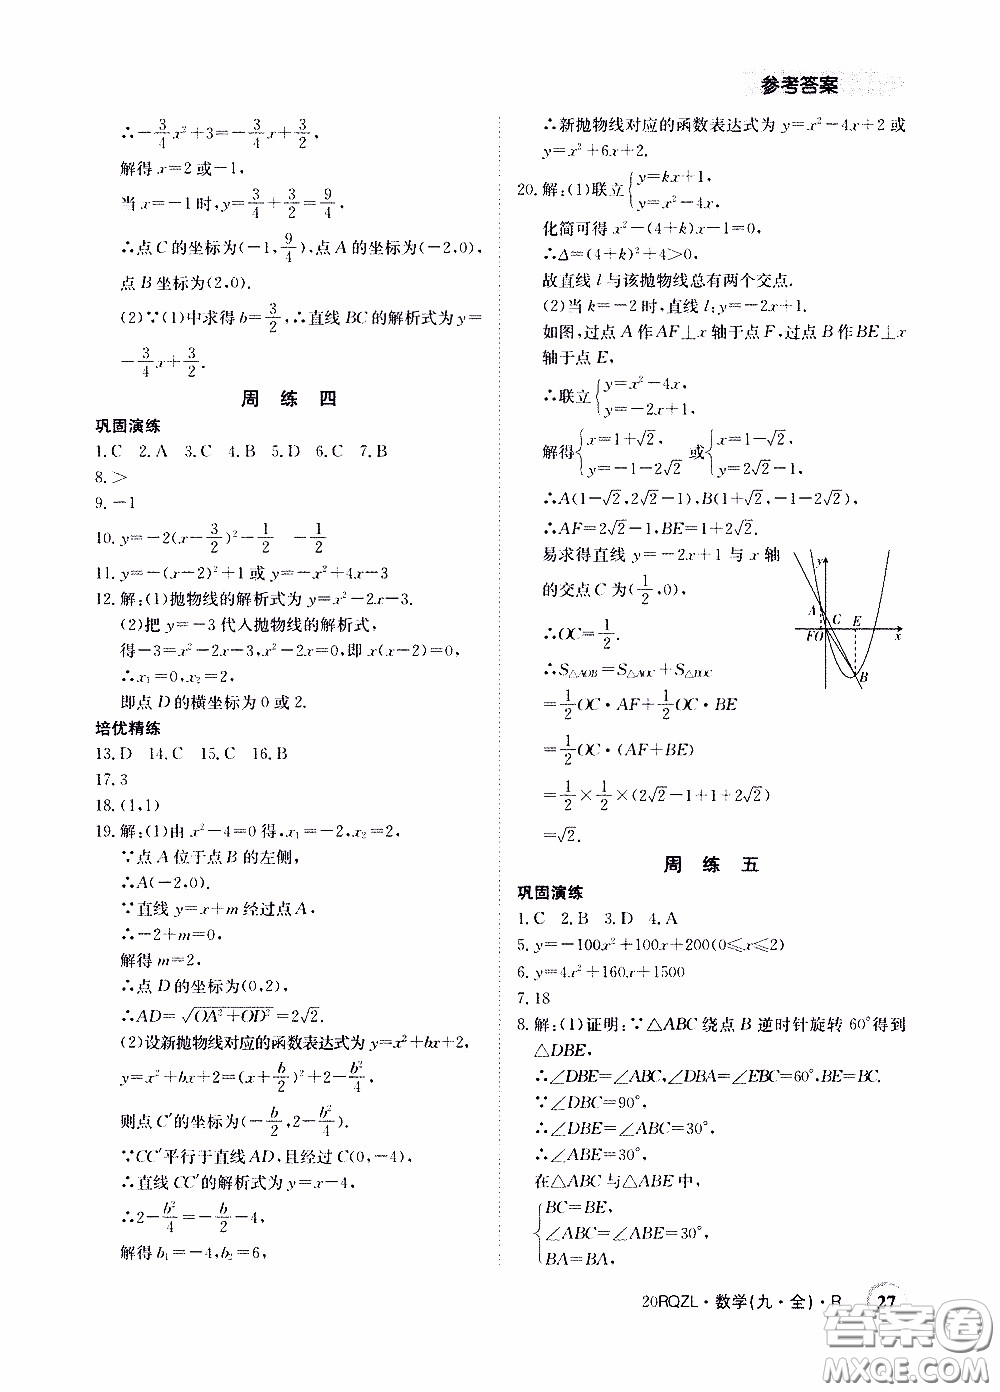 参考答案
∴−3/4x²+3=−3/4x+3/2,
解得 x=2 或−1,
当 x=−1 时,y=3/4+3/2=9/4,
∴点 C 的坐标为(−1,9/4),点 A 的坐标为(−2,0),
点 B 坐标为(2,0).
(2)∵(1)中求得 b=3/2,∴直线 BC 的解析式为 y=
−3/4x+3/2.
周 练 四
巩固演练
1.C 2.A 3.C 4.B 5.D 6.C 7.B
8.>
9.−1
10.y=−2(x−3/2)²−1/2 −1/2
11.y=−(x−2)²+1 或 y=−x²+4x−3
12.解:(1)抛物线的解析式为 y=x²−2x−3.
(2)把 y=−3 代入抛物线的解析式,
得−3=x²−2x−3,x²−2x=0,即 x(x−2)=0,
∴x₁=0,x₂=2,
即点 D 的横坐标为 0 或 2.
培优精练
13.D 14.C 15.C 16.B
17.3
18.(1,1)
19.解:(1)由 x²−4=0 得,x₁=−2,x₂=2,
∵点 A 位于点 B 的左侧,
∴A(−2,0).
∵直线 y=x+m 经过点 A,
∴−2+m=0,
解得 m=2,
∴点 D 的坐标为(0,2),
∴AD=√(OA²+OD²)=2√2.
(2)设新抛物线对应的函数表达式为 y=x²+bx+2,
y=x²+bx+2=(x+b/2)²+2−b²/4,
则点 C′的坐标为(−b/2,2−b²/4).
∵CC′平行于直线 AD,且经过 C(0,−4),
∴直线 CC′的解析式为 y=x−4,
∴2−b²/4=−b/2−4,
解得 b₁=−4,b₂=6,
∴新抛物线对应的函数表达式为 y=x²−4x+2 或
y=x²+6x+2.
20.解:(1)联立{y=kx+1,
y=x²−4x,
化简可得 x²−(4+k)x−1=0,
∴Δ=(4+k)²+4>0,
故直线 l 与该抛物线总有两个交点.
(2)当 k=−2 时,直线 l:y=−2x+1.
如图,过点 A 作 AF⊥x 轴于点 F,过点 B 作 BE⊥x
轴于点 E,
∴联立{y=x²−4x,
y=−2x+1,
解得{x=1+√2, 或{x=1−√2,
y=−1−2√2 y=2√2−1,
∴A(1−√2,2√2−1),B(1+√2,−1−2√2),
∴AF=2√2−1,BE=1+2√2.
易求得直线 y=−2x+1 与 x 轴
的交点 C 为(1/2,0),
y
A
C
E
F
O
x
B
∴OC=1/2.
∴S△AOB=S△AOC+S△BOC
=1/2OC·AF+1/2OC·BE
=1/2OC·(AF+BE)
=1/2×1/2×(2√2−1+1+2√2)
=√2.
周 练 五
巩固演练
1.C 2.B 3.D 4.A
5.y=−100x²+100x+200(0≤x≤2)
6.y=4x²+160x+1500
7.18
8.解:(1)证明:∵△ABC 绕点 B 逆时针旋转 60°得到
△DBE,
∴∠DBE=∠ABC,∠DBA=∠EBC=60°,BE=BC.
∵∠DBC=90°,
∴∠DBE=∠ABC=30°,
∴∠ABE=30°,
在△ABC 与△ABE 中,
{BC=BE,
∠ABC=∠ABE=30°,
BA=BA,
20RQZL·数学(九·全)·R 27
答案圈
MXQE.COM